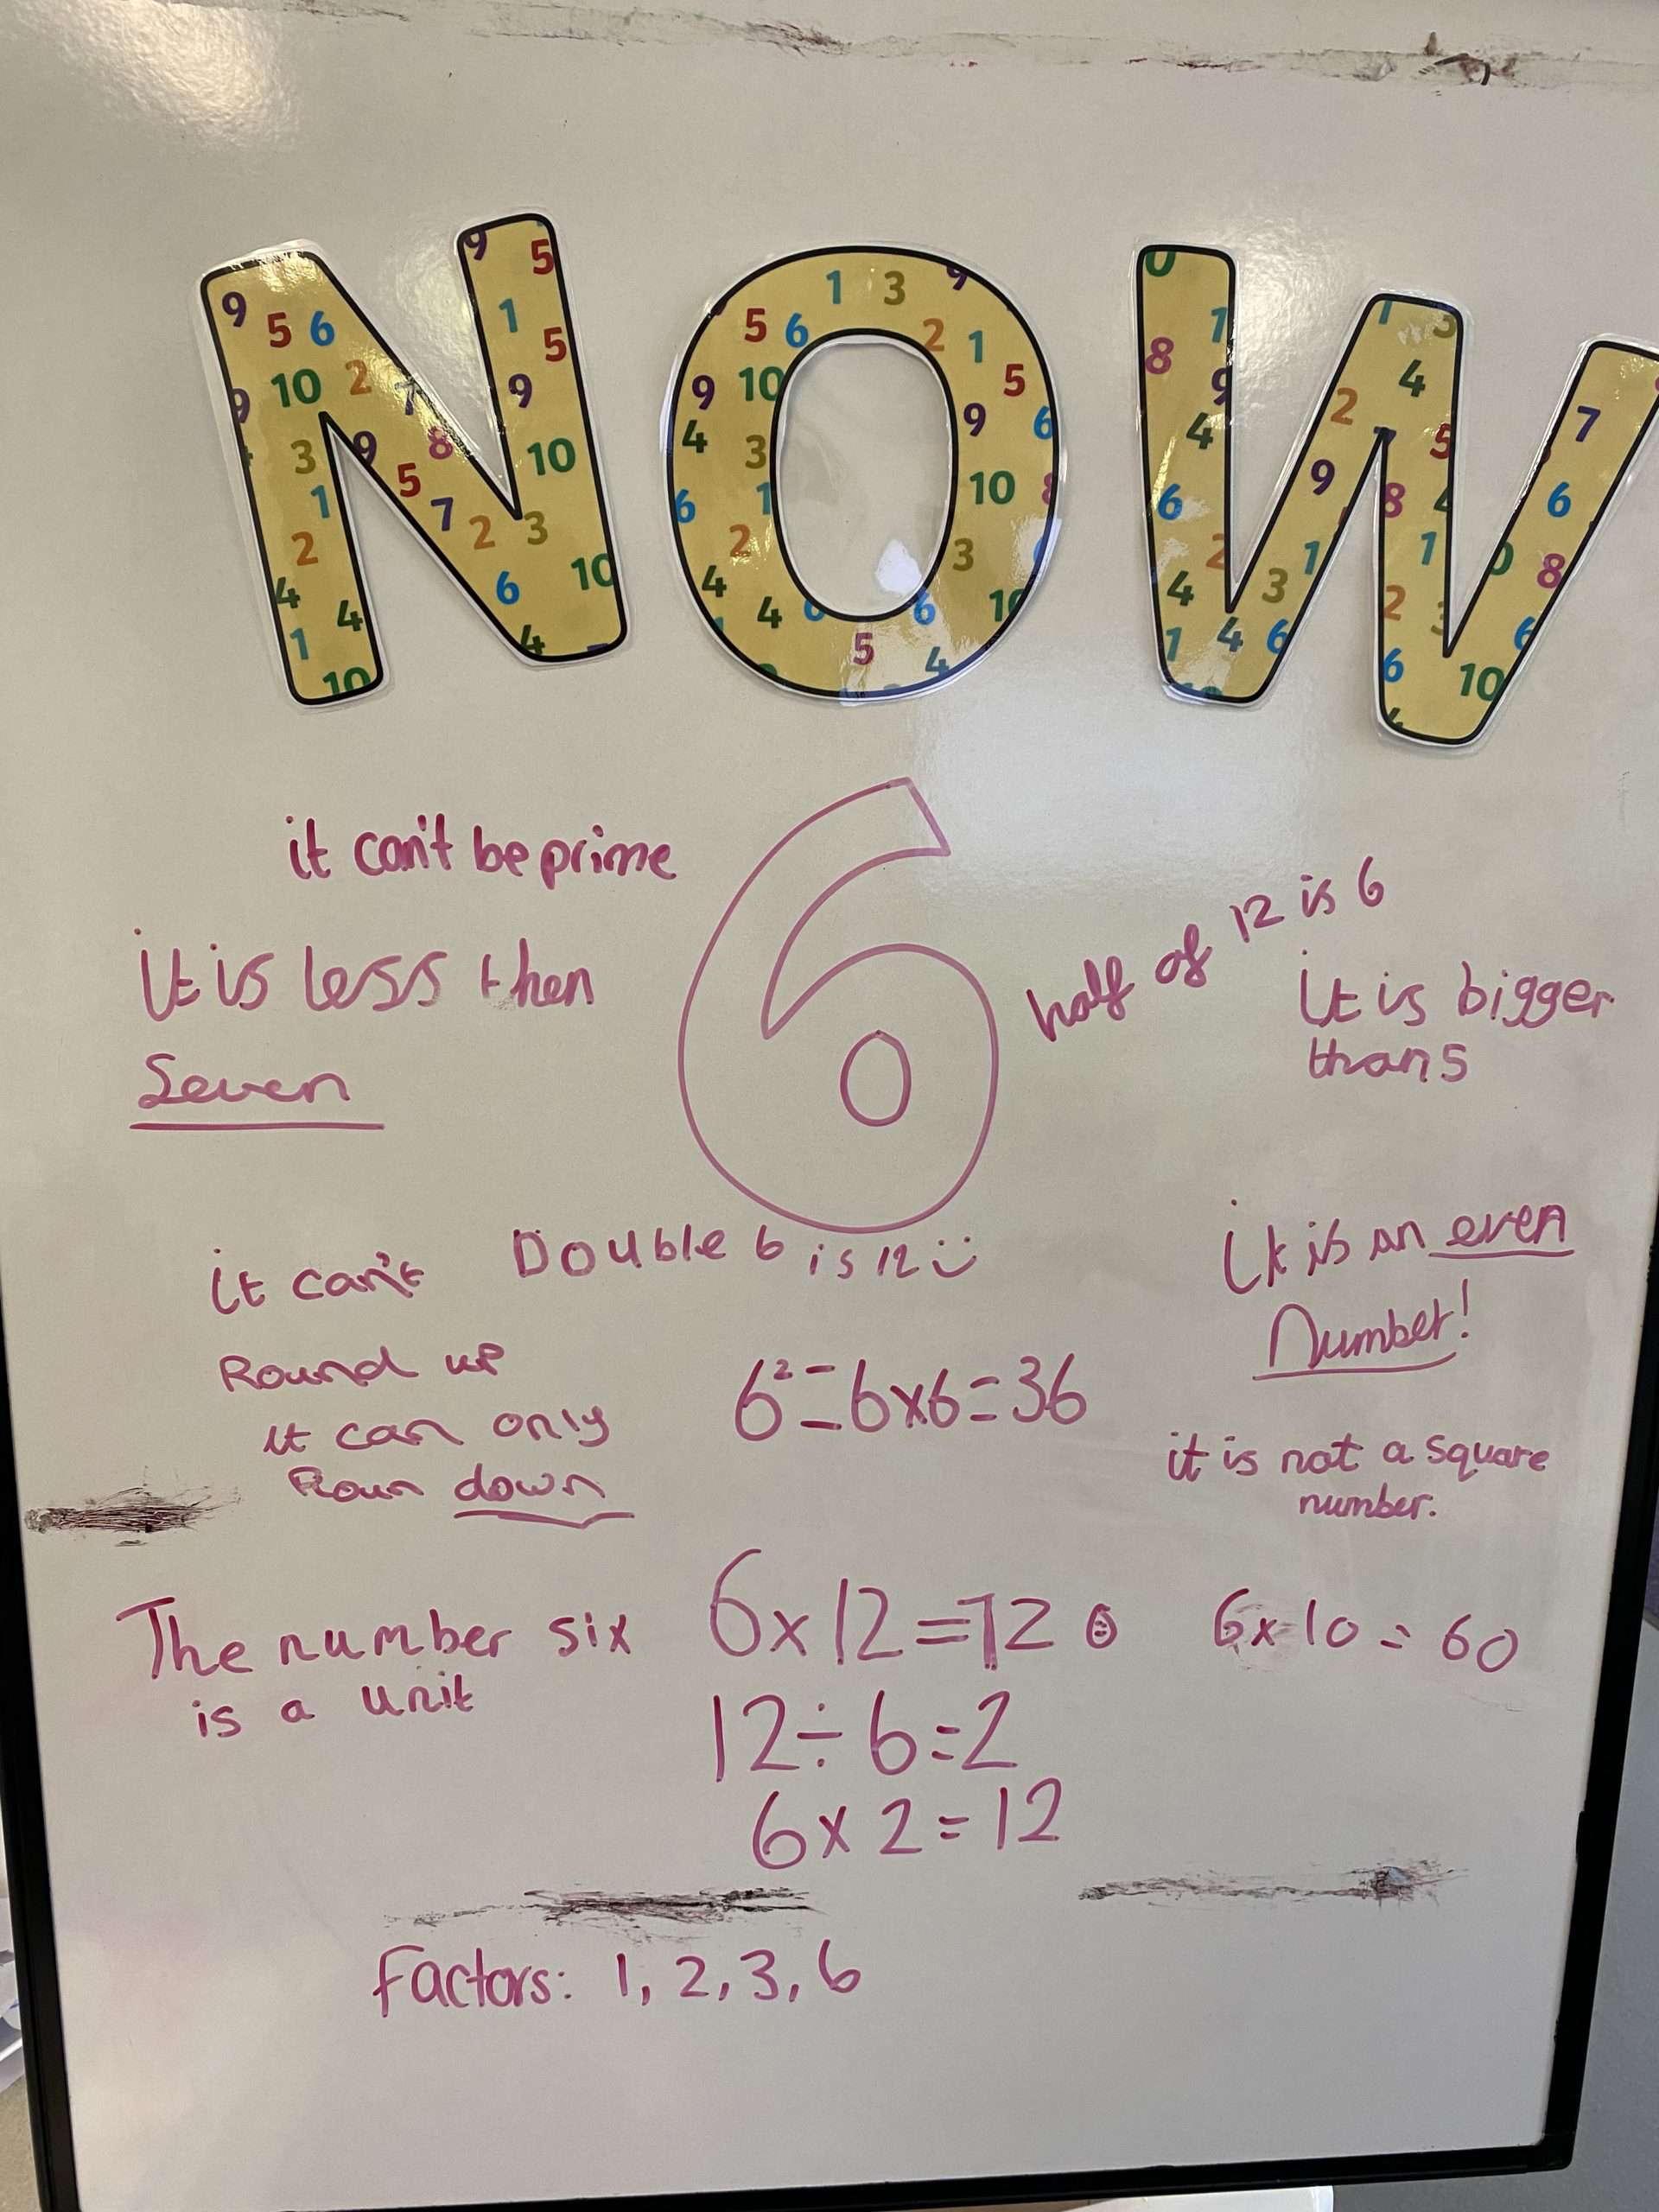 NOW
it can't be prime
6
half of 12 is 6
it is less then
Seven
it is bigger
than 5
Double 6 is 12
it is an even
Number!
it can't
Round up
it can only
Roun down
6²=6x6=36
it is not a square
number.
The number six
is a unit
6x12=72
6x10=60
12÷6=2
6x2=12
Factors: 1, 2, 3, 6